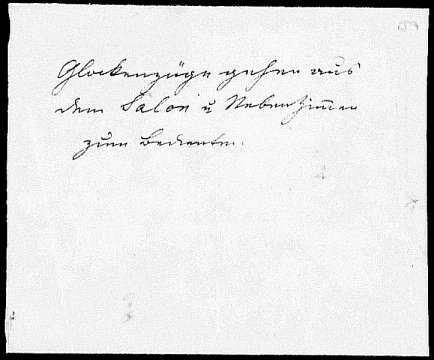 Glockenzüge gehen aus
dem Salon u Nebenzimmer
zum Bedienten.